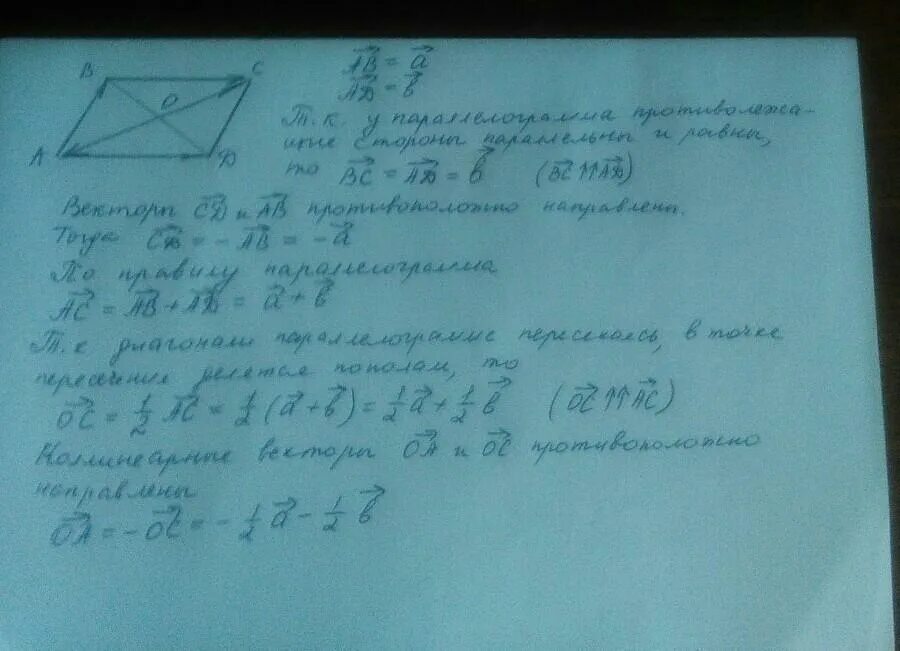 B C O A D
AB⃗ = a⃗
AD⃗ = b⃗
Т.к. у параллелограмма противолежа-
щие стороны параллельны и равны,
то BC⃗ = AD⃗ = b⃗ (BC⃗ ↑↑ AD⃗)
Векторы CD⃗ и AB⃗ противоположно направлены.
Тогда CD⃗ = - AB⃗ = - a⃗
По правилу параллелограмма
AC⃗ = AB⃗ + AD⃗ = a⃗ + b⃗
Т.к диагонали параллелограмма пересекаясь, в точке
пересечения делятся пополам, то
OC⃗ = 1/2 AC⃗ = 1/2 (a⃗ + b⃗) = 1/2 a⃗ + 1/2 b⃗ (OC⃗ ↑↑ AC⃗)
Коллинеарные векторы OA⃗ и OC⃗ противоположно
направлены
OA⃗ = - OC⃗ = - 1/2 a⃗ - 1/2 b⃗